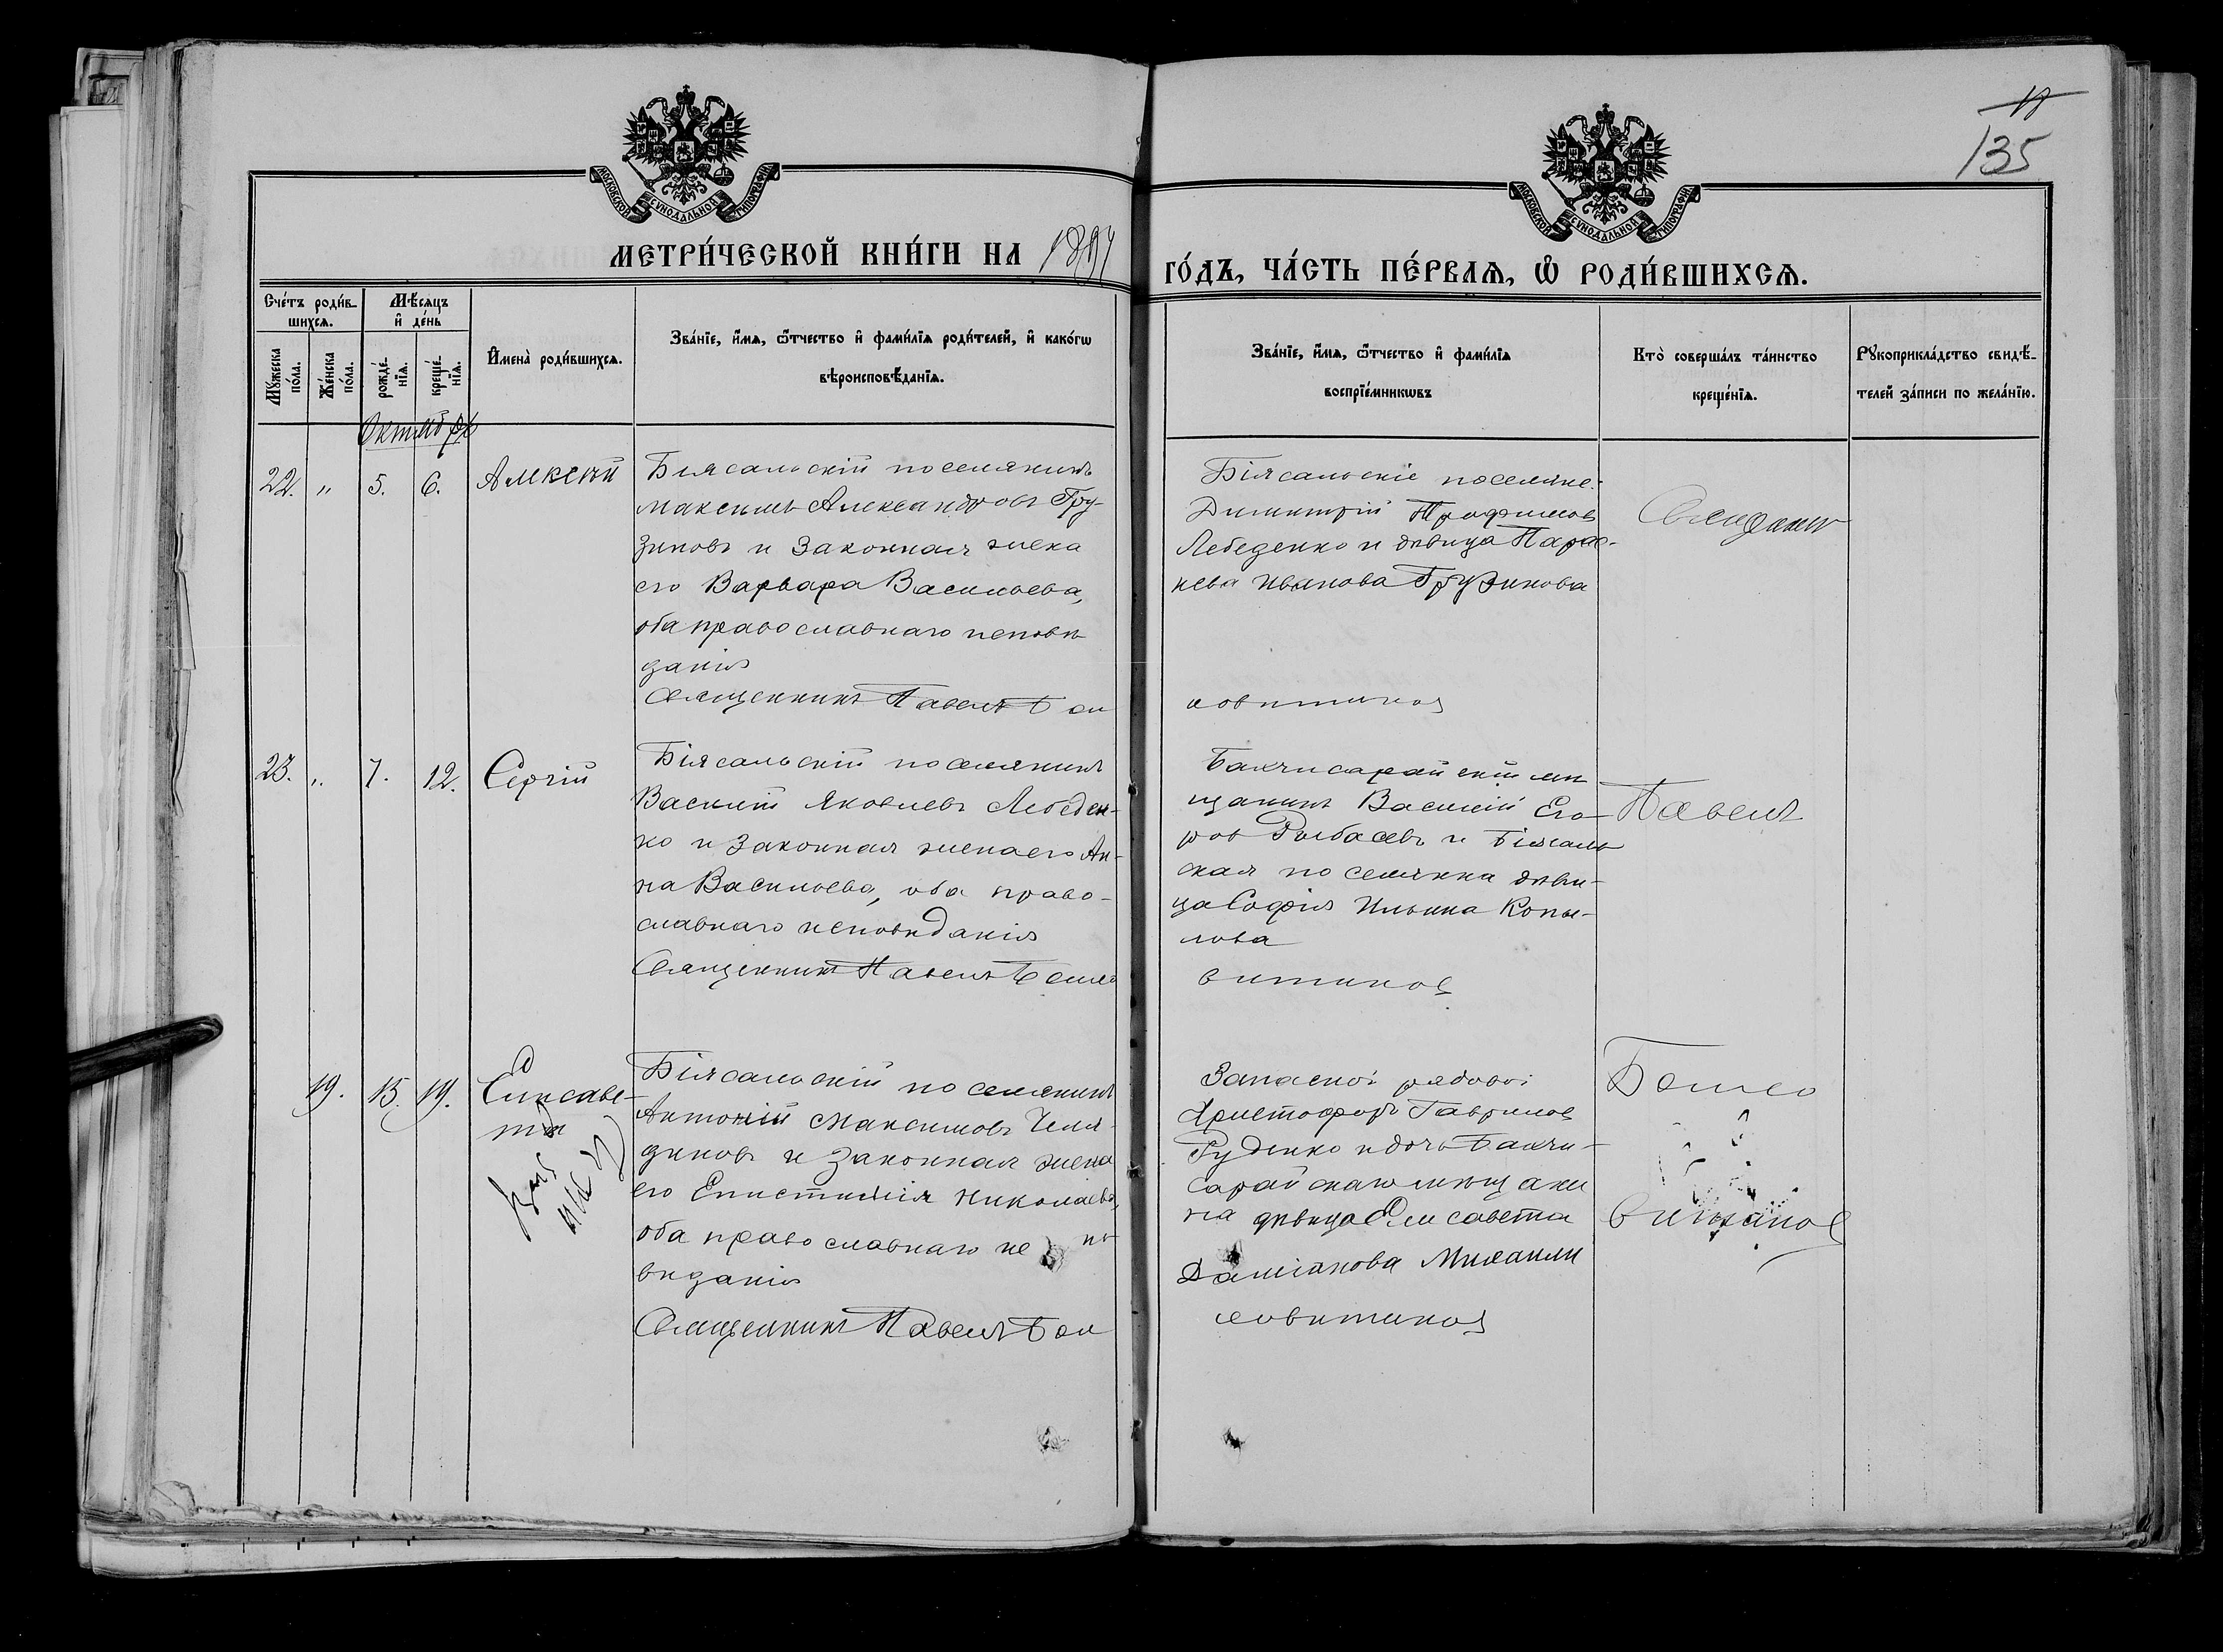 135
МОСКОВСКОЙ СѴНОДАЛЬНОЙ ТИПОГРАФИИ
МОСКОВСКОЙ СѴНОДАЛЬНОЙ ТИПОГРАФИИ
МЕТРИ́ЧЕСКОЙ КНИ́ГИ НА
ГО́ДЪ, ЧА́СТЬ ПЕ́РВАѦ, Ѽ РОДИ́ВШИХСѦ.
Сче́тъ роди́в-
шихсѧ.
Мѣ́сѧцъ
и҆ де́нь
Мꙋ́жеска
по́ла.
Же́нска
по́ла.
рожде́-
нїѧ.
креще́-
нїѧ.
И҆мена̀ роди́вшихсѧ.
Зва́нїе, и҆́мѧ, ѻ҆́тчество и҆ фамн́лїѧ роди́телей, и҆ како́гѡ
вѣроисповѣ́данїѧ.
Зва́нїе, и҆́мѧ, ѻ҆́тчество и҆ фами́лїѧ
воспрїе́мникѡвъ
Кто̀ соверша́лъ та́инство
креще́нїѧ.
Рꙋкоприкла́дство свидѣ́-
телей за́писи по жела́нїю.
Октябрь
22. " 5. 6. Алексѣй
Біясальскій поселянинъ
Максимъ Александровъ Гру-
зиновъ и законная жена
его Варвара Васильева,
оба православнаго исповѣ
данія
Священникъ Павелъ Бои
Біясальскіе поселяне:
Димитрій Трофимовъ
Лебеденко и дѣвица Парас-
кева Иванова Грузинова
Священникъ
23. " 7. 12. Сергій
Біясальскій поселянинъ
Василій Яковлевъ Лебеден-
ко и законная жена его Ан-
на Васильева, оба право-
славнаго исповѣданія
Священникъ Павелъ
Бахчисарайскій мѣ
щанинъ Василій Его-
ровъ и Біясаль
ская поселянка дѣви-
ца Софія Ильина Копы-
лова
Павелъ
19. 15. 19. Елисаве-
та
Біясальскій поселянинъ
Антоній Максимовъ Челя-
диновъ и законная жена
его Епистимія Николаева,
оба православнаго испо
вѣданія
Священникъ Павелъ
Запасной рядовой
Христофоръ Гавриловъ
Руденко и дочь Бахчи-
сарайскаго мѣщани
на дѣвица Елисавета
Даміанова Михаили